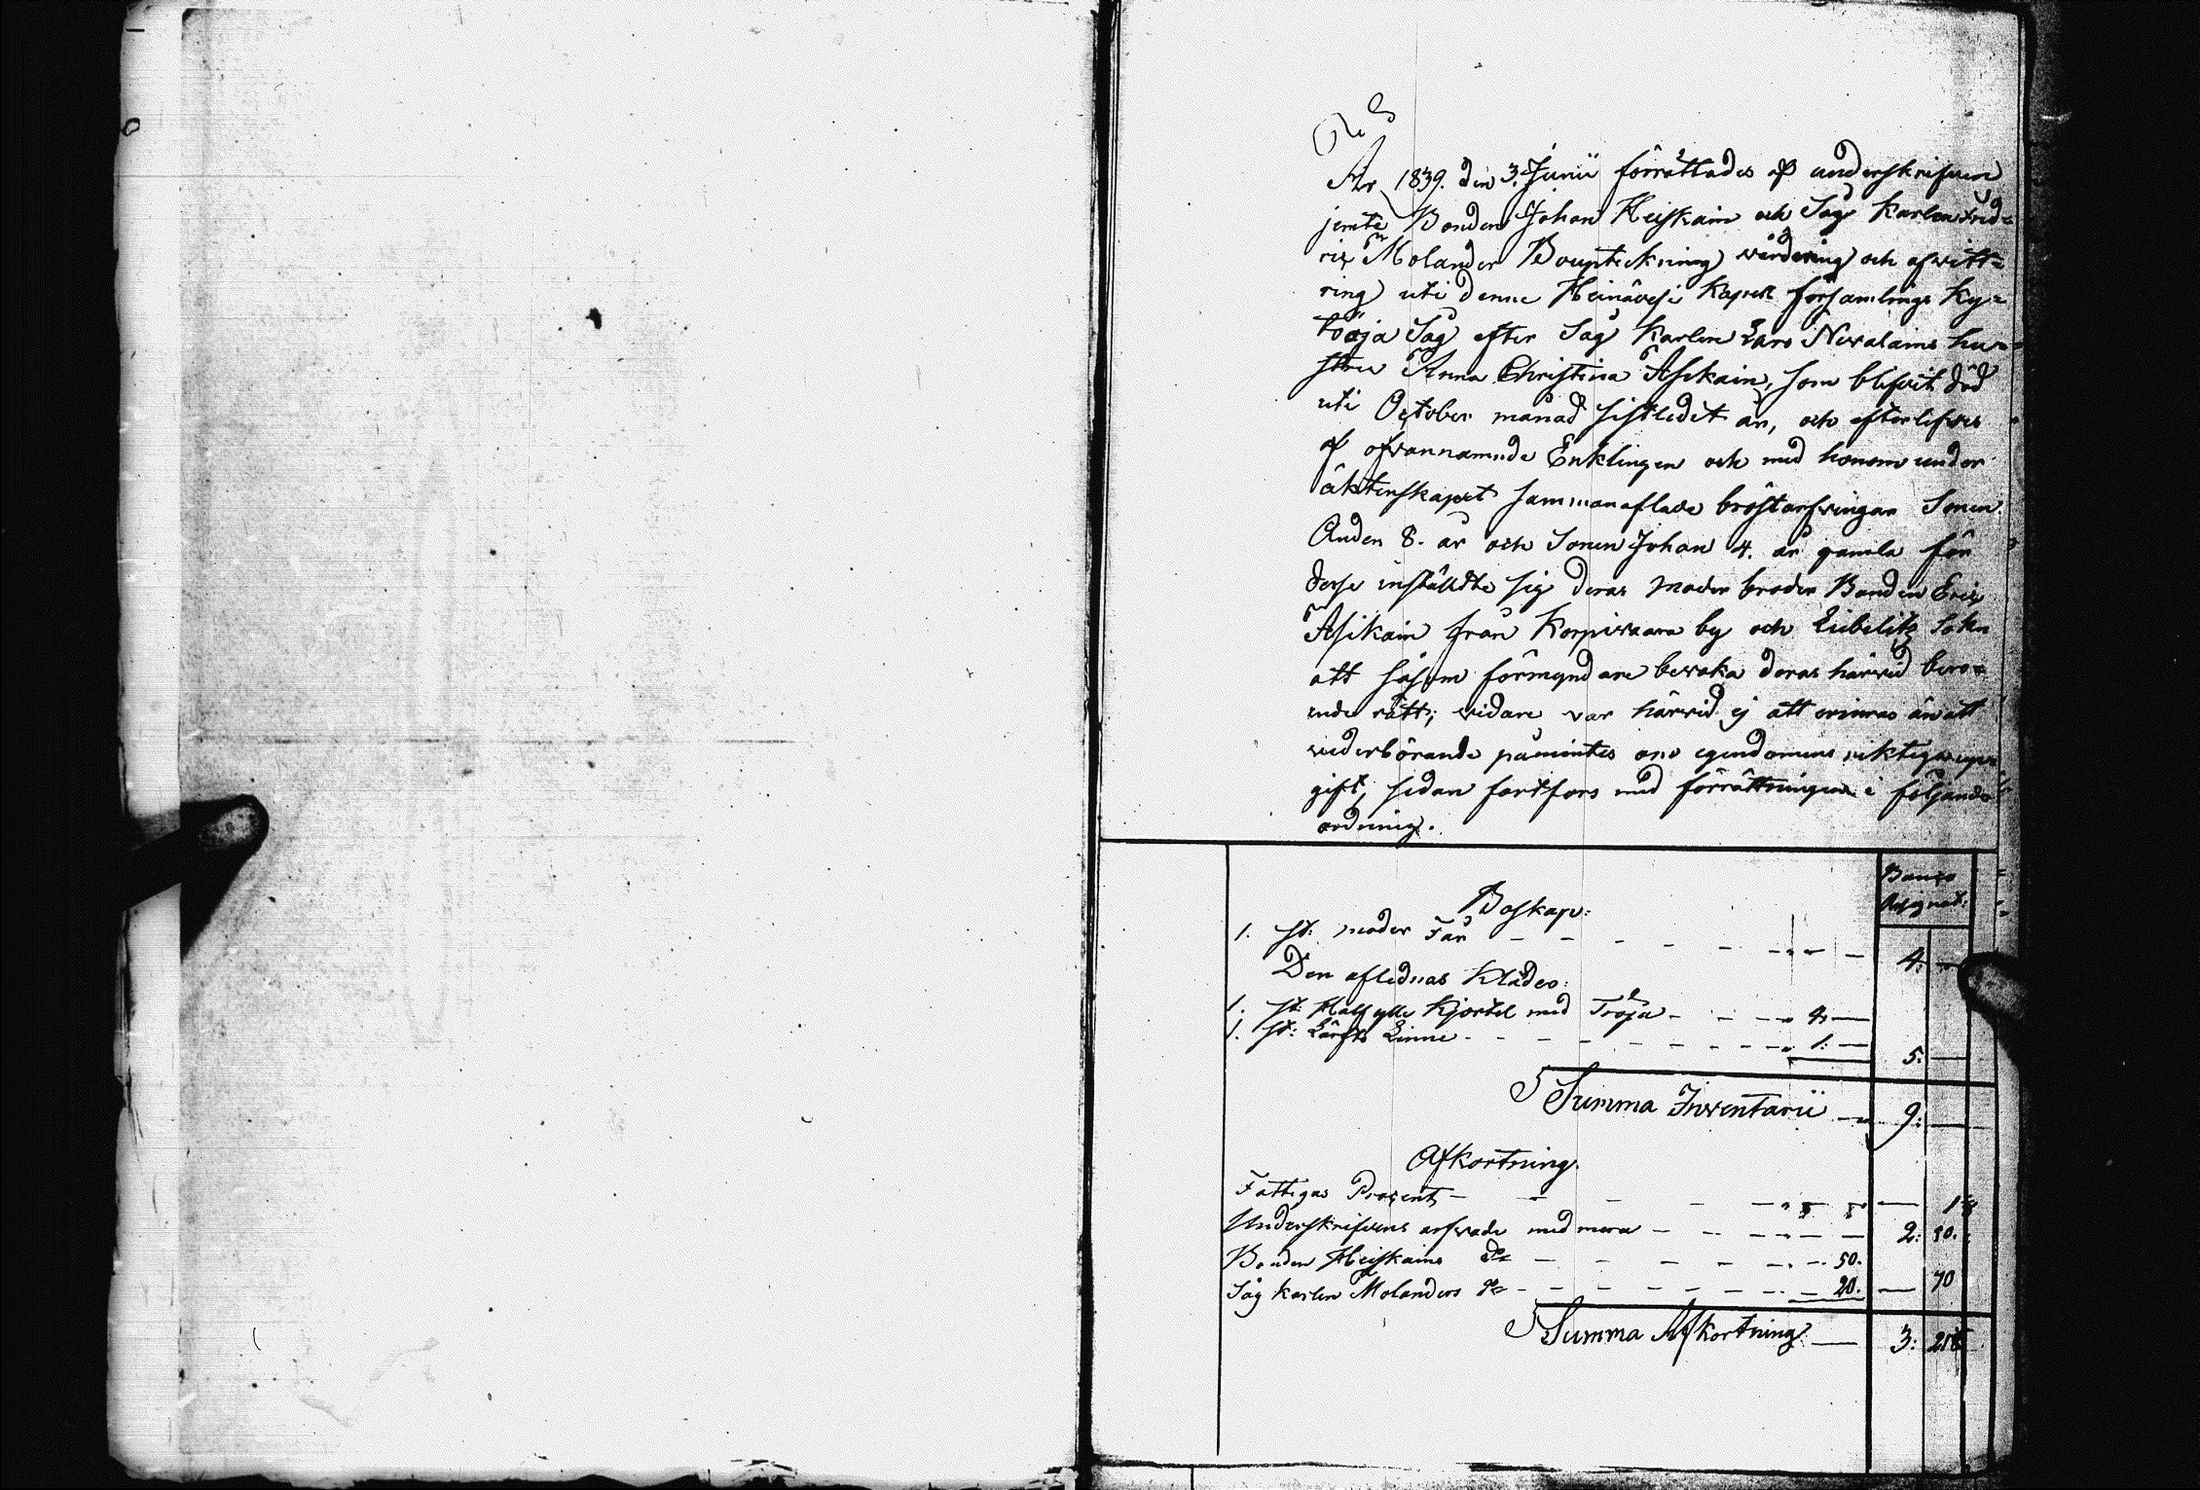 År 1839. den 3. Junii förrättades af underskrifven
jemte Bonden Johan Heiskain och Såg Karlen Fred=
ric Molander Boupteckning värdering och afvitt=
ring uti denne Heinävesi Kapell församlings Ky=
Såg efter Såg Karlen Lars Nevalains hu=
stru Anna Christina Asikain, som blifvit död
uti October månad sistledit år, och efterlefves
af ofvannamnde Enklingen och med honom under
äktenskapet sammanaflade bröstarfvingar Sonen
Anders 8. år och Sonen Johan 4. år gamla för
desse instälde sig deras moder broder Bonden Eric
Asikain från Korpivaara by och Libelitz Sokn
att såsom förmyndare bevaka deras härvid bero=
ende rätt; vidare var härvid ej att erinras än att
vederbörande påmintes om egendomens riktiga upp
gift, sedan fortfors med förrättningen i följande
ordning.
Banco
Assignat:
Boskap:
1. st: moder Får - - - - - - 4: —
Den aflednas Kläder:
1. st: Half ylle Kjortel med Tröja - - - 4: —
1. st: Lärfts Linne - - - - - - - - 1: — 5: —
Summa Inventarii — 9: —
Afkortning.
Fattigas Procent - - - - - —
Underskrifvens arfvode med mera - - - - - 2: 50.
Bonden Heiskains do - - - - - - 50.
Såg karlen Molanders do - - - - - - - 20. — 70
Summa Afkortning: — 3: